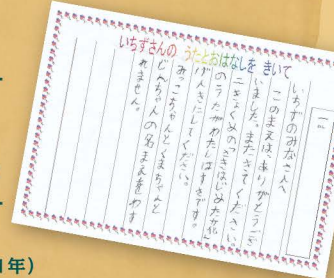 いちずさんの うたとおはなしを きいて
一の
いちずのみなさんへ
このまえは、ありがとうござ
いました。またきてください。
二きょくめの「さきはじめた花」
のうたがわたしはすきです。
げんきにしてください。
みっこちゃんとくまちゃんと
じんちゃんの名まえをわす
れません。
1年）